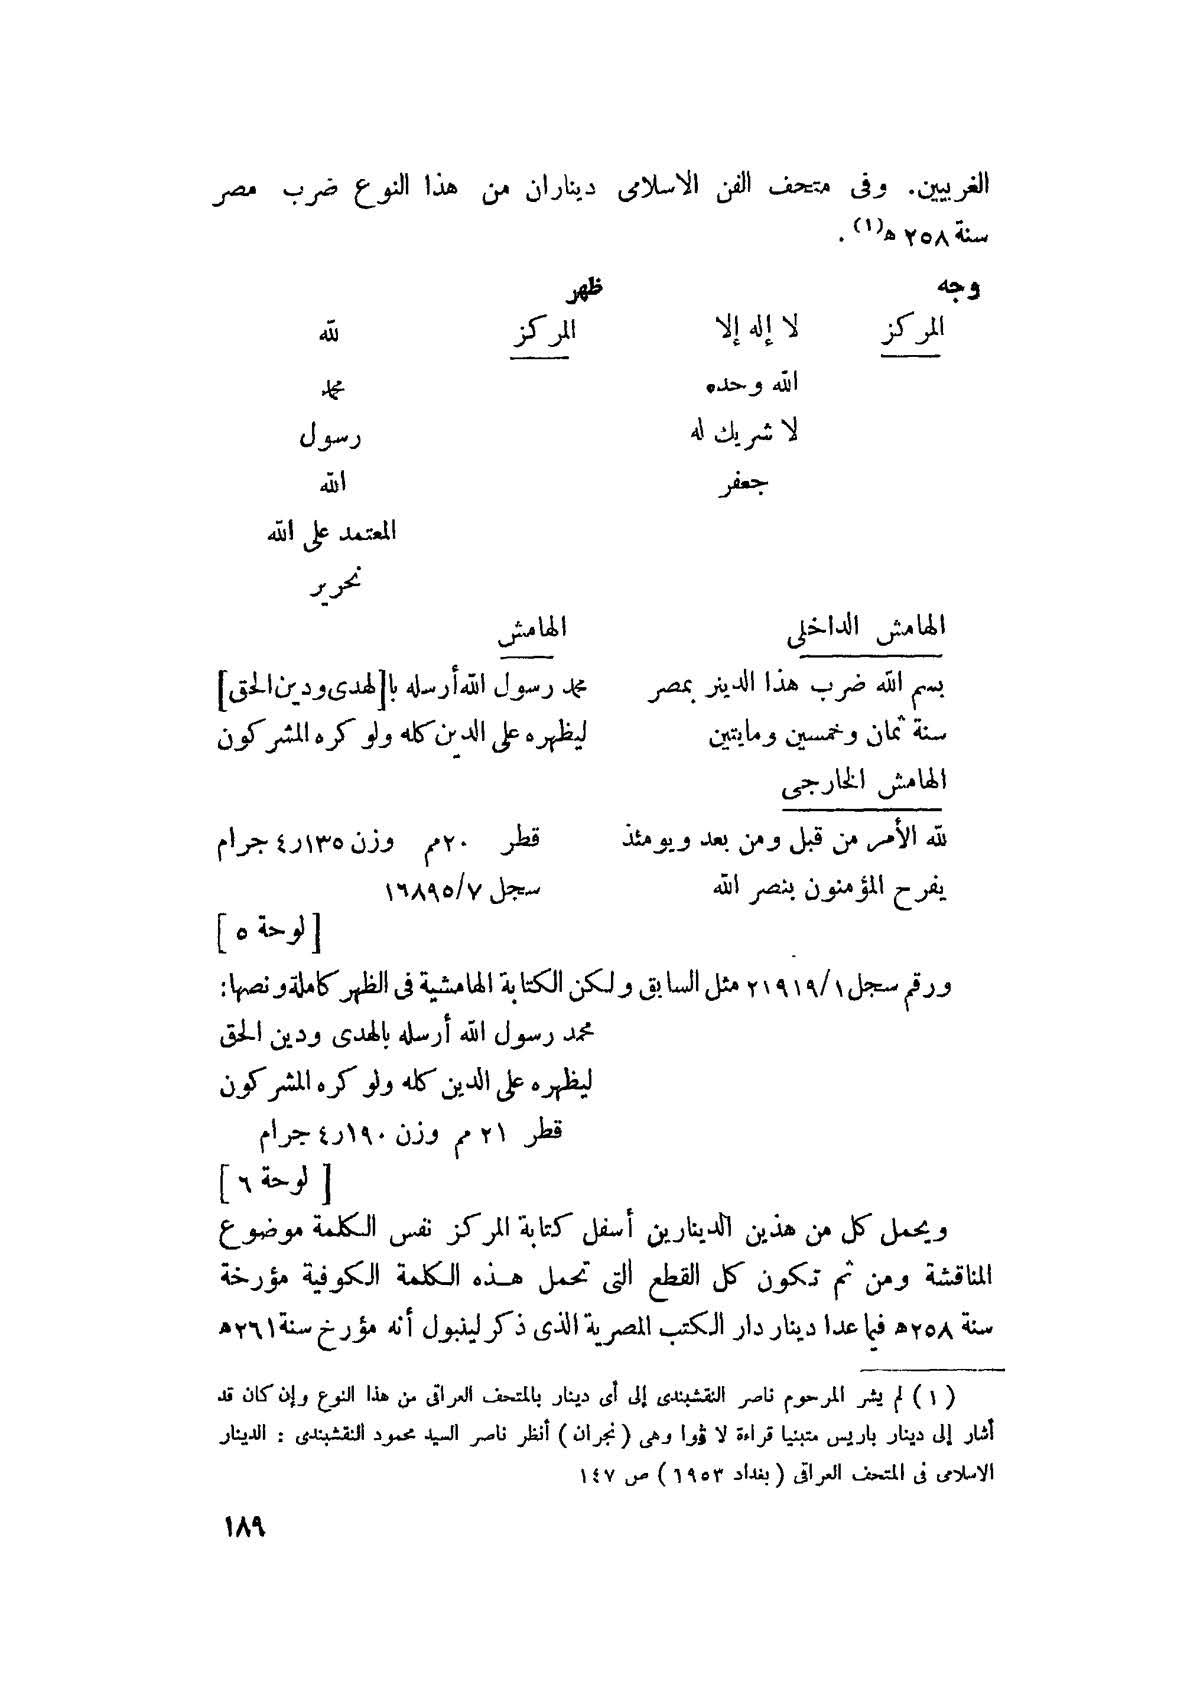 الغربيين. وفى متحف الفن الاسلامى ديناران من هذا النوع ضرب مصر
سنة ٢٥٨ هـ(١) .
وجه
المركز
لا إله إلا
الله وحده
لا شريك له
جعفر
ظهر
المركز
لله
محمد
رسول
الله
المعتمد على الله
نحرير
الهامش الداخلى
بسم الله ضرب هذا الدينر بمصر
سنة ثمان وخمسين ومايتين
الهامش
محمد رسول الله أرسله با[لهدى ودين الحق]
ليظهره على الدين كله ولو كره المشركون
الهامش الخارجى
لله الأمر من قبل ومن بعد ويومئذ
يفرح المؤمنون بنصر الله
قطر ٢٠مم وزن ٤٫١٣٥ جرام
سجل ١٦٨٩٥/٧
[لوحة ٥]
ورقم سجل ٢١٩١٩/١ مثل السابق ولكن الكتابة الهامشية فى الظهر كاملة ونصها:
محمد رسول الله أرسله بالهدى ودين الحق
ليظهره على الدين كله ولو كره المشركون
قطر ٢١ مم وزن ٤٫١٩٠ جرام
[لوحة ٦]
ويحمل كل من هذين الدينارين أسفل كتابة المركز نفس الكلمة موضوع
المناقشة ومن ثم تكون كل القطع التى تحمل هذه الكلمة الكوفية مؤرخة
سنة ٢٥٨هـ فيما عدا دينار دار الكتب المصرية الذى ذكر لينبول أنه مؤرخ سنة ٢٦١هـ
(١) لم يشر المرحوم ناصر النقشبندى إلى أى دينار بالمتحف العراقى من هذا النوع وإن كان قد
أشار إلى دينار باريس متبنيا قراءة لا ڤوا وهى (نجران) أنظر ناصر السيد محمود النقشبندى : الدينار
الاسلامى فى المتحف العراقى (بغداد ١٩٥٣) ص ١٤٧
١٨٩